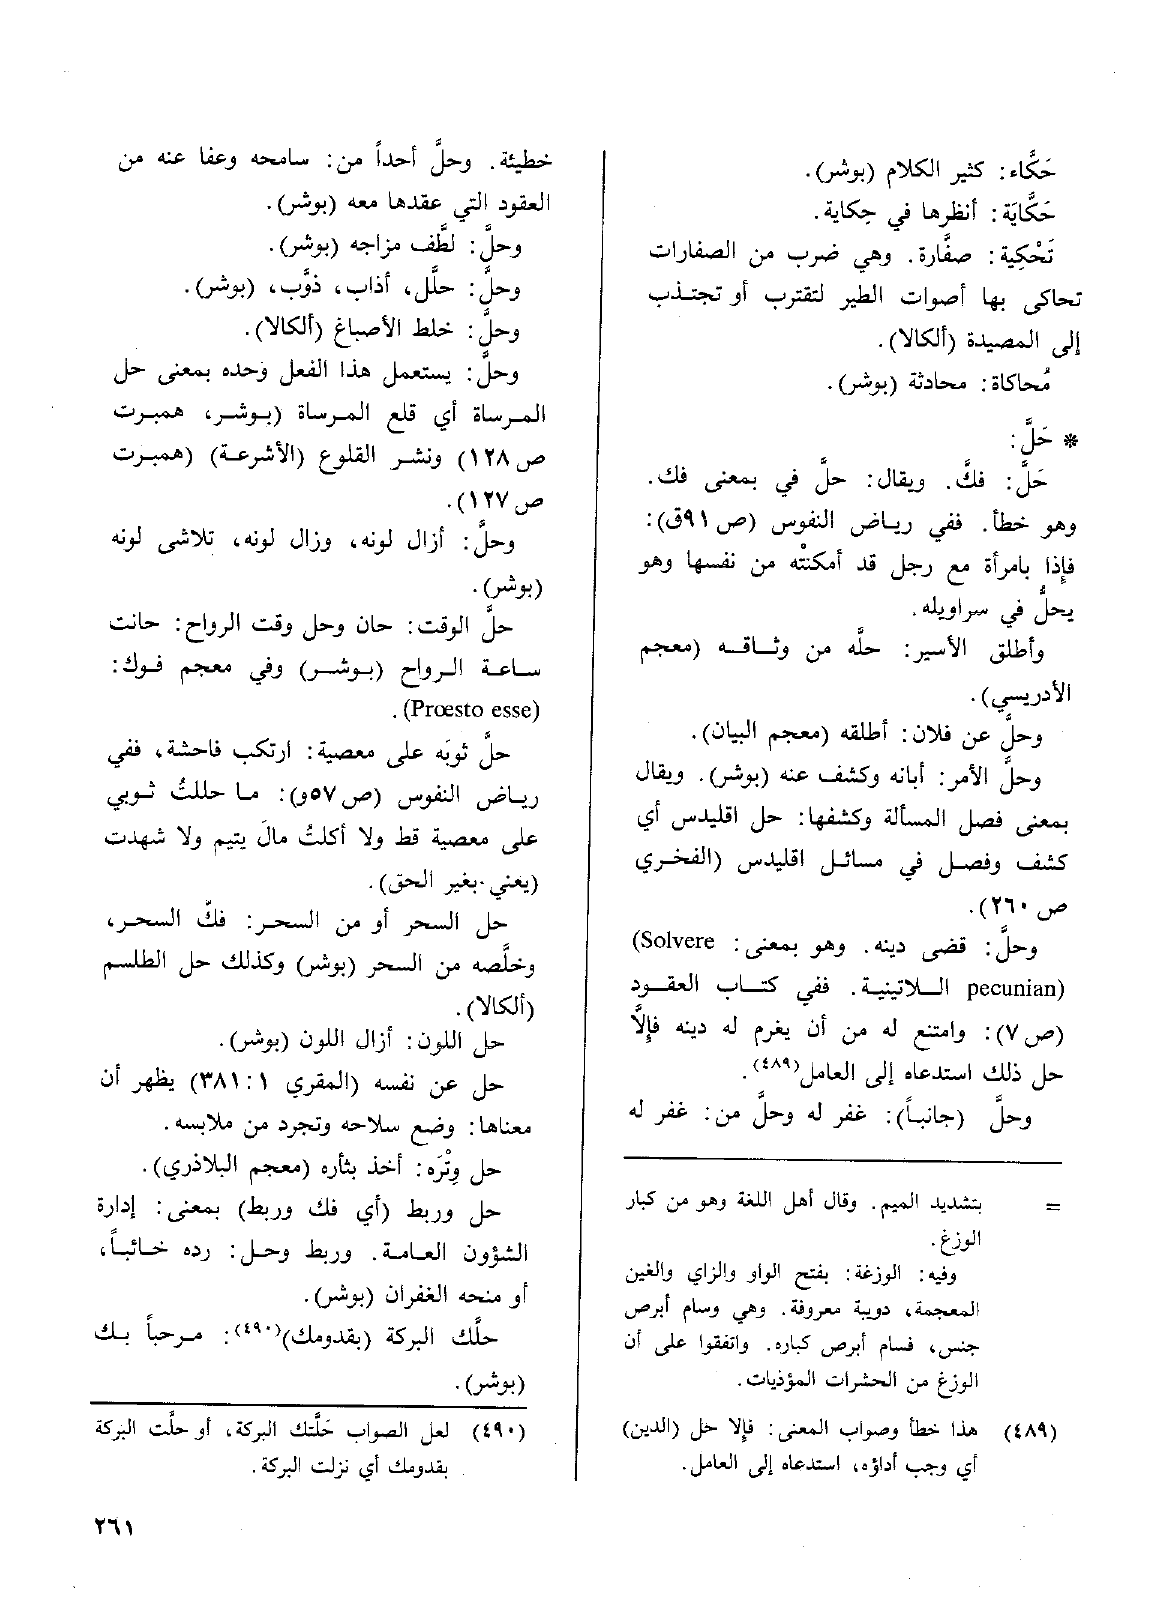 حَكَّاء: كثير الكلام (بوشر).
حَكَّايَة: أنظرها في حِكاية.
تَحْكِية: صفَّارة. وهي ضرب من الصفارات
تحاكى بها أصوات الطير لتقترب أو تجتذب
إلى المصيدة (ألكالا).
مُحاكاة: محادثة (بوشر).
* حَلَّ:
حَلَّ: فكَّ. ويقال: حلَّ في بمعنى فك.
وهو خطأ. ففي رياض النفوس (ص٩١ق):
فإذا بامرأة مع رجل قد أمكنتْه من نفسها وهو
يحلُّ في سراويله.
وأطلق الأسير: حلَّه من وثاقه (معجم
الأدريسي).
وحلَّ عن فلان: أطلقه (معجم البيان).
وحلَّ الأمر: أبانه وكشف عنه (بوشر). ويقال
بمعنى فصل المسألة وكشفها: حل اقليدس أي
كشف وفصل في مسائل اقليدس (الفخري
ص٢٦٠).
وحلَّ: قضى دينه. وهو بمعنى: (Solvere
pecunian) اللاتينية. ففي كتاب العقود
(ص٧): وامتنع له من أن يغرم له دينه فإلاَّ
حل ذلك استدعاه إلى العامل(٤٨٩).
وحلَّ (جانباً): غفر له وحلَّ من: غفر له
= بتشديد الميم. وقال أهل اللغة وهو من كبار
الوزغ.
وفيه: الوزغة: بفتح الواو والزاي والغين
المعجمة، دويبة معروفة. وهي وسام أبرص
جنس، فسام أبرص كباره. واتفقوا على أن
الوزغ من الحشرات المؤذيات.
(٤٨٩) هذا خطأ وصواب المعنى: فإلا حل (الدين)
أي وجب أداؤه، استدعاه إلى العامل.
خطيئة. وحلَّ أحداً من: سامحه وعفا عنه من
العقود التي عقدها معه (بوشر).
وحلَّ: لطَّف مزاجه (بوشر).
وحلَّ: حلَّل، أذاب، ذوَّب، (بوشر).
وحلَّ: خلط الأصباغ (ألكالا).
وحلَّ: يستعمل هذا الفعل وحده بمعنى حل
المرساة أي قلع المرساة (بوشر، همبرت
ص١٢٨) ونشر القلوع (الأشرعة) (همبرت
ص١٢٧).
وحلَّ: أزال لونه، وزال لونه، تلاشى لونه
(بوشر).
حلَّ الوقت: حان وحل وقت الرواح: حانت
ساعة الرواح (بوشر) وفي معجم فوك:
(Prœsto esse).
حلَّ ثوبَه على معصية: ارتكب فاحشة، ففي
رياض النفوس (ص٥٧و): ما حللتُ ثوبي
على معصية قط ولا أكلتُ مالَ يتيم ولا شهدت
(يعني بغير الحق).
حل السحر أو من السحر: فكَّ السحر،
وخلَّصه من السحر (بوشر) وكذلك حل الطلسم
(ألكالا).
حل اللون: أزال اللون (بوشر).
حل عن نفسه (المقري ١: ٣٨١) يظهر أن
معناها: وضع سلاحه وتجرد من ملابسه.
حل وِتْرَه: أخذ بثأره (معجم البلاذري).
حل وربط (أي فك وربط) بمعنى: إدارة
الشؤون العامة. وربط وحل: رده خائباً،
أو منحه الغفران (بوشر).
حلَّك البركة (بقدومك)(٤٩٠): مرحباً بك
(بوشر).
(٤٩٠) لعل الصواب حَلَّتك البركة، أو حلَّت البركة
بقدومك أي نزلت البركة.
٢٦١